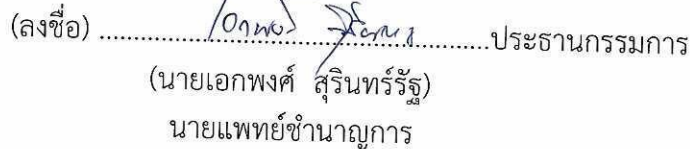 (ลงชื่อ) ........................................................ประธานกรรมการ
(นายเอกพงศ์ สุรินทร์รัฐ)
นายแพทย์ชำนาญการ